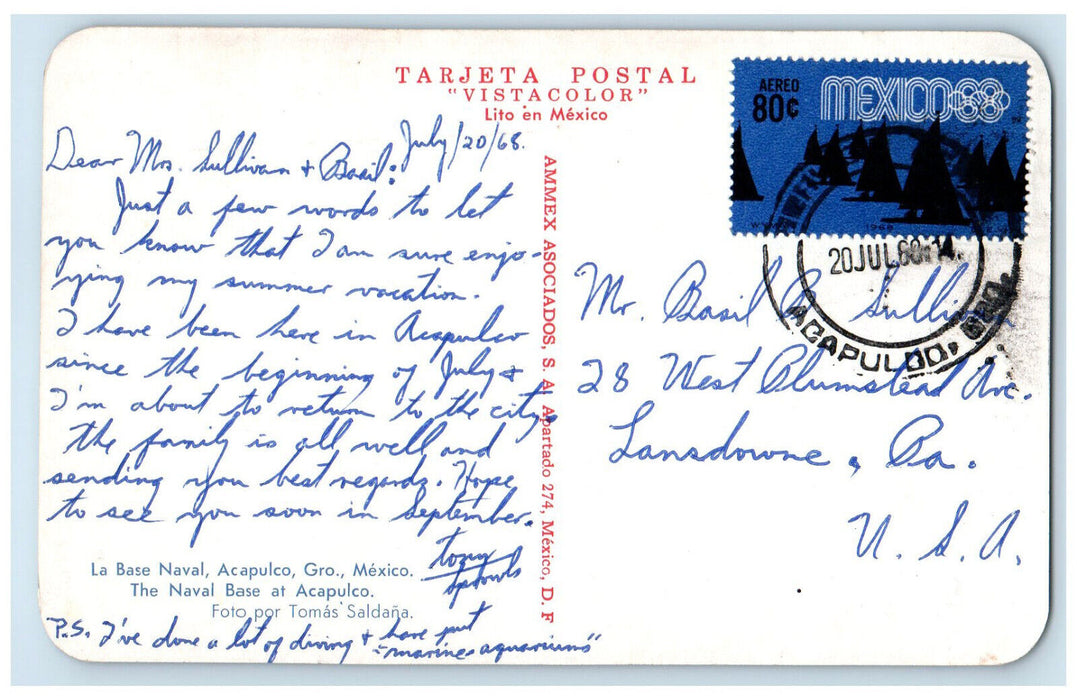 TARJETA POSTAL
"VISTACOLOR"
Lito en México
AEREO
80¢
MEXICO68
1968
20 JUL.68.14.
ACAPULCO, GRO.
July/20/68.
Dear Mrs. Sullivan & Basil:
Just a few words to let
you know that I am sure enjo-
ying my summer vacation.
I have been here in Acapulco
since the beginning of July &
I'm about to return to the city.
The family is all well and
sending you best regards. Hope
to see you soon in September.
Tony
La Base Naval, Acapulco, Gro., México.
The Naval Base at Acapulco.
Foto por Tomás Saldaña.
P.S. I've done a lot of diving & have put
"marine aquariums"
AMMEX ASOCIADOS, S. A. Apartado 274, México, D. F
Mr. Basil B. Sullivan
28 West Plumstead Ave.
Lansdowne, Pa.
U. S. A.